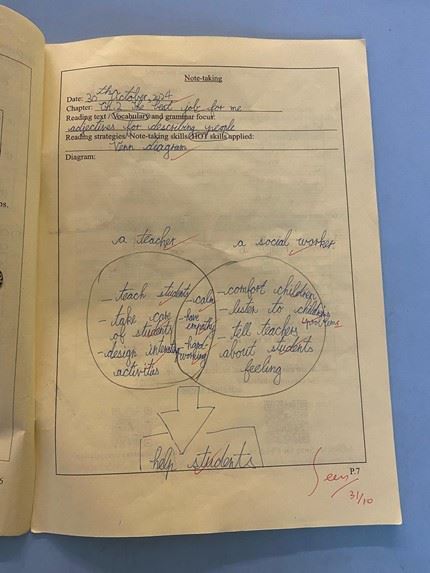 Note-taking
Date: 30th October, 2024
Chapter: Ch.2 The best job for me
Reading text / Vocabulary and grammar focus:
adjectives for describing people
Reading strategies/Note-taking skills/HOT skills applied:
Venn diagram
Diagram:
a teacher
a social worker
- teach students
- take care
of students
- design
activities
- calm
- have
empathy
- hard-
working
- comfort children
- listen to
- tell teachers
about students
feeling
help students
P.7
Seen
31/10